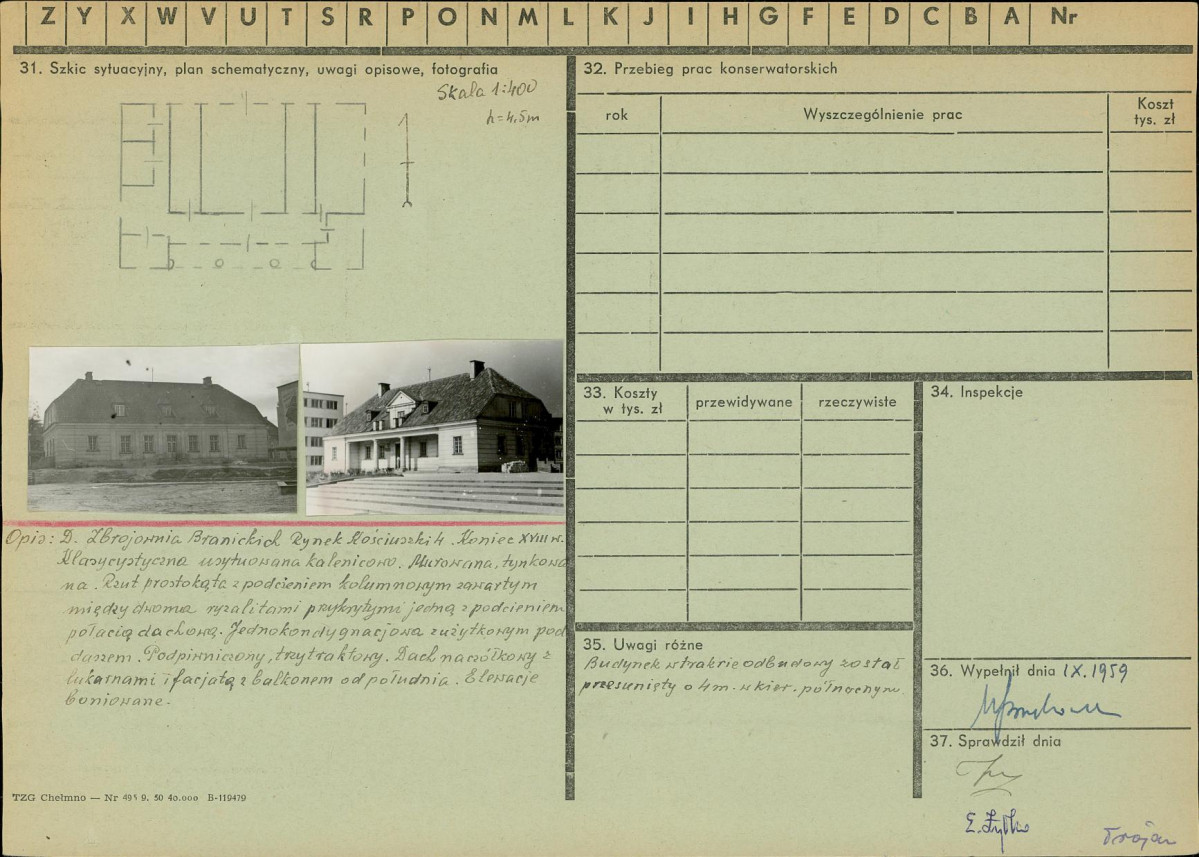 Z Y X W V U T S R P O N M L K J I H G F E D C B A Nr
31. Szkic sytuacyjny, plan schematyczny, uwagi opisowe, fotografia
Skala 1:400
h = 4.5m
Opis: D. Zbrojownia Branickich Rynek Kościuszki 4. Koniec XVIII w.
Klasycystyczna usytuowana kalenicowo. Murowana, tynkowa
na. Rzut prostokąta z podcieniem kolumnowym zawartym
między dwoma ryzalitami przykrytymi jedną z podcieniem
połacią dachową. Jednokondygnacjowa z użytkowym pod
daszem. Podpiwniczony, trzytraktowy. Dach naczółkowy z
lukarnami i facjatą z balkonem od południa. Elewacje
boniowane.
TZG Chełmno — Nr 495 9. 50 40.000 B-119479
32. Przebieg prac konserwatorskich
rok
Wyszczególnienie prac
Koszt
tys. zł
33. Koszty
w tys. zł
przewidywane
rzeczywiste
34. Inspekcje
35. Uwagi różne
Budynek w trakcie odbudowy został
przesunięty o 4m. w kier. północnym.
36. Wypełnił dnia IX. 1959
37. Sprawdził dnia